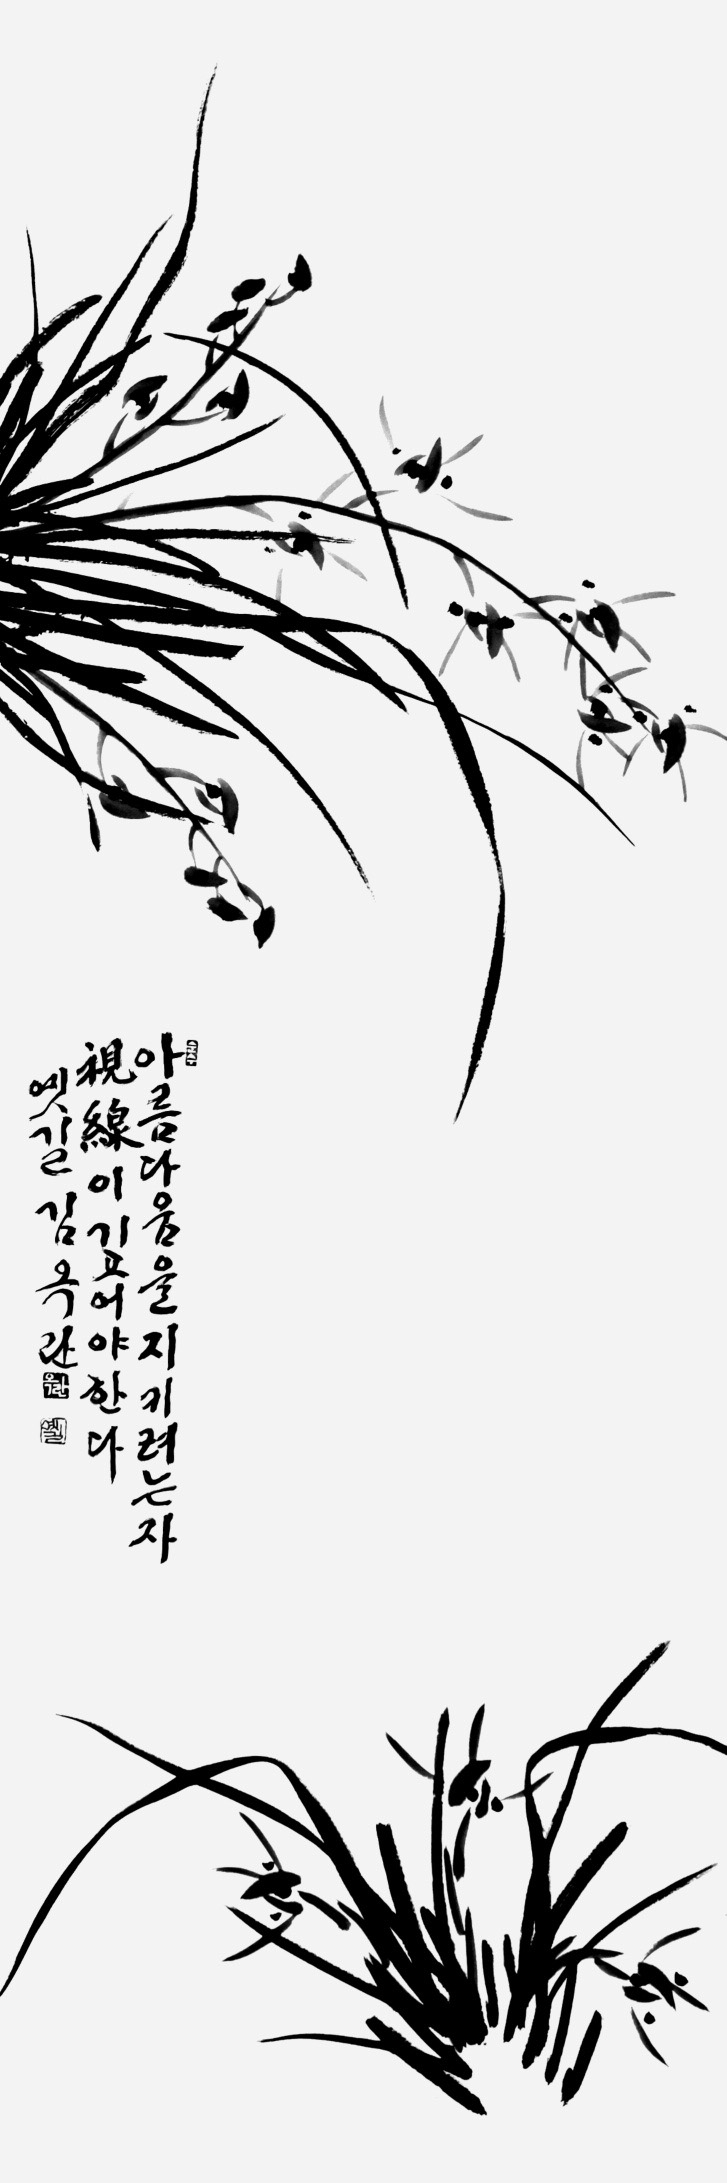 아름다움을지키려는자
視線이깊어야한다
옛길 김옥란